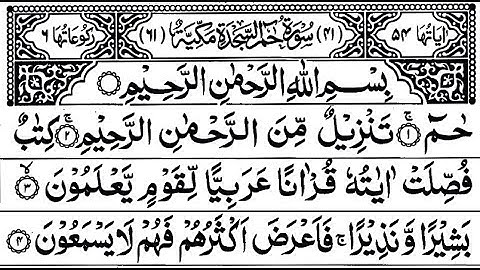 اٰیَاتُهَا ٥٤ (٤١) سُوْرَةُ حٰمٓ السَّجْدَةِ مَكِّيَّةٌ (٦١) رُكُوْعَاتُهَا ٦
بِسْمِ اللّٰهِ الرَّحْمٰنِ الرَّحِيْمِ
حٰمٓ ۚ ١ تَنْزِيْلٌ مِّنَ الرَّحْمٰنِ الرَّحِيْمِ ۚ ٢ كِتٰبٌ
فُصِّلَتْ اٰيٰتُهٗ قُرْاٰنًا عَرَبِيًّا لِّقَوْمٍ يَّعْلَمُوْنَ ۙ ٣
بَشِيْرًا وَّ نَذِيْرًا ۚ فَاَعْرَضَ اَكْثَرُهُمْ فَهُمْ لَا يَسْمَعُوْنَ ٤